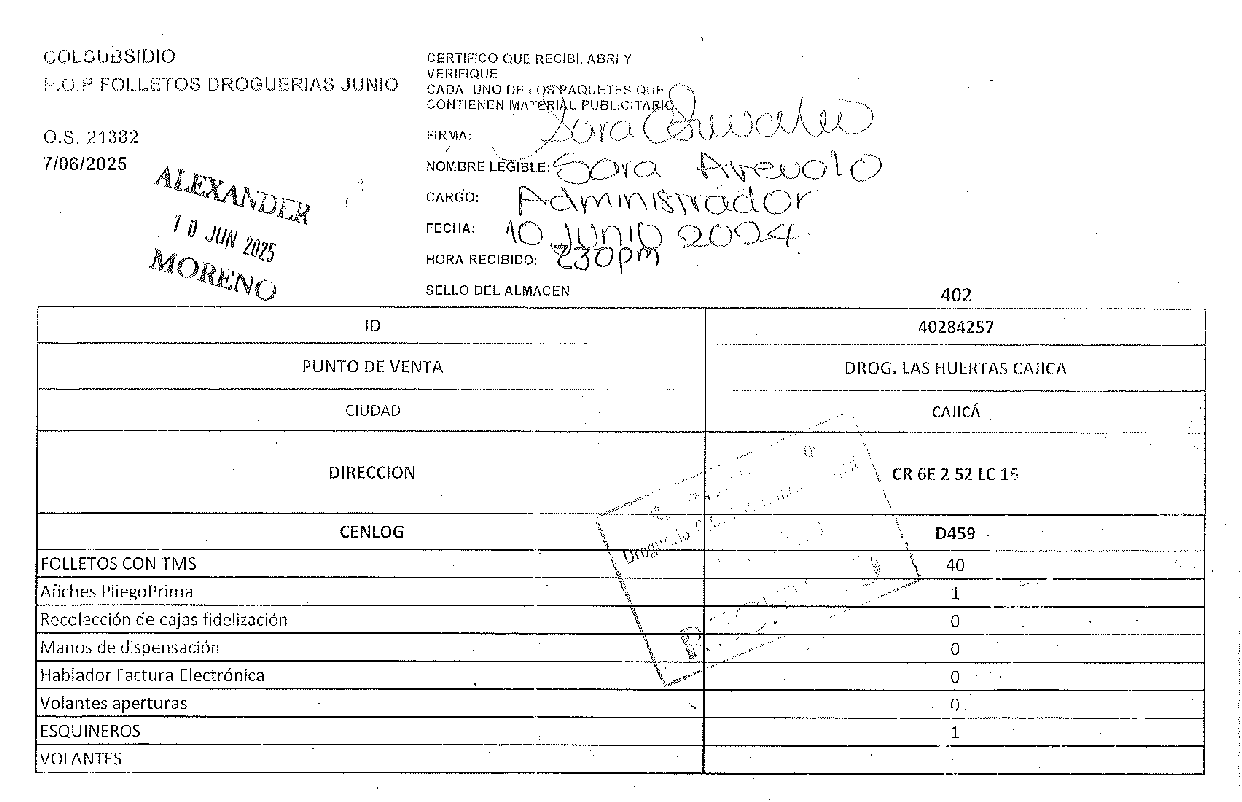 COLSUBSIDIO
P.O.P FOLLETOS DROGUERIAS JUNIO
O.S. 21382
7/06/2025
ALEXANDER
10 JUN 2025
MORENO
CERTIFICO QUE RECIBI, ABRI Y
VERIFIQUE
CADA UNO DE LOS PAQUETES QUE
CONTIENEN MATERIAL PUBLICITARIO
FIRMA: Sara
NOMBRE LEGIBLE: Sara Arevalo
CARGO: Administrador
FECHA: 10 Junio 2024
HORA RECIBIDO: 230pm
SELLO DEL ALMACEN
402
ID 40284257
PUNTO DE VENTA DROG. LAS HUERTAS CAJICA
CIUDAD CAJICÁ
DIRECCION CR 6E 2 52 LC 15
CENLOG D459
FOLLETOS CON TMS 40
Afiches PliegoPrima 1
Recolección de cajas fidelización 0
Manos de dispensación 0
Hablador Factura Electrónica 0
Volantes aperturas 0
ESQUINEROS 1
VOLANTES